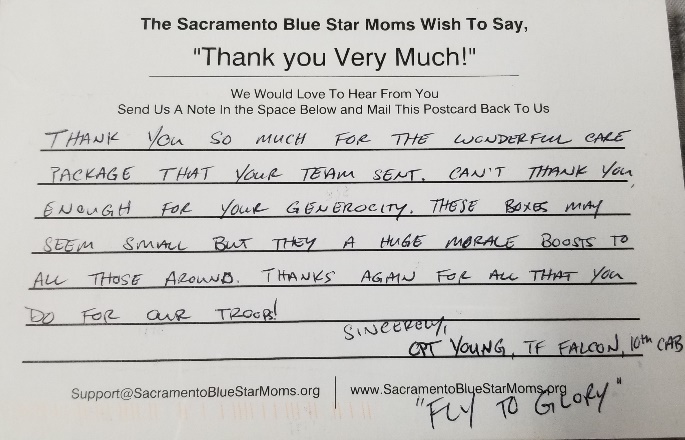 The Sacramento Blue Star Moms Wish To Say,
"Thank you Very Much!"
We Would Love To Hear From You
Send Us A Note In the Space Below and Mail This Postcard Back To Us
THANK YOU SO MUCH FOR THE WONDERFUL CARE
PACKAGE THAT YOUR TEAM SENT. CAN'T THANK YOU
ENOUGH FOR YOUR GENEROCITY. THESE BOXES MAY
SEEM SMALL BUT THEY A HUGE MORALE BOOSTS TO
ALL THOSE AROUND. THANKS AGAIN FOR ALL THAT YOU
DO FOR OUR TROOPS!
SINCERELY,
CPT YOUNG, TF FALCON, 10th CAB
Support@SacramentoBlueStarMoms.org | www.SacramentoBlueStarMoms.org
"FLY TO GLORY"